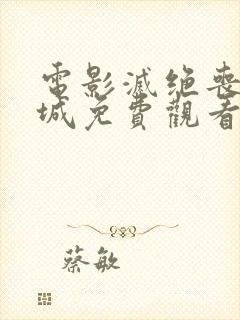 電影滅绝喪
城免費觀看
蔡敏